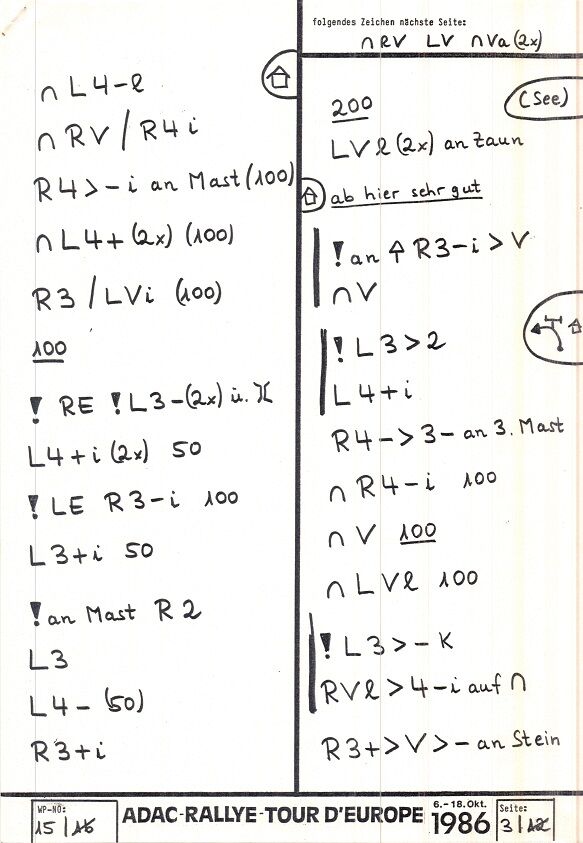 folgendes Zeichen nächste Seite:
∩ RV LV ∩ Va (2x)
∩ L4-l
∩ RV / R4 i
R4 > - i an Mast (100)
∩ L4+ (2x) (100)
R3 / LVi (100)
100
! RE ! L3-(2x) ü. )(
L4+i (2x) 50
! LE R3-i 100
L3+i 50
! an Mast R2
L3
L4- (50)
R3+i
200
(See)
LVl (2x) an Zaun
ab hier sehr gut
! an ↑ R3-i > V
∩ V
! L3>2
L4+i
R4->3- an 3. Mast
∩ R4-i 100
∩ V 100
∩ LVl 100
! L3>-K
RVl>4-i auf ∩
R3+>V>- an Stein
WP-NO:
15 / 16
ADAC-RALLYE-TOUR D'EUROPE
6.-18. Okt.
1986
Seite:
3 / 12